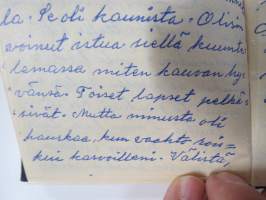 la. Se oli kaunista. Olisin
voinut istua siellä kuunte
lemassa miten kauvan hy
vänsä. Toiset lapset pelkä
sivät. Mutta minusta oli
hauskaa, kun vaahto rois=
kui kasvoilleni. Välistä,